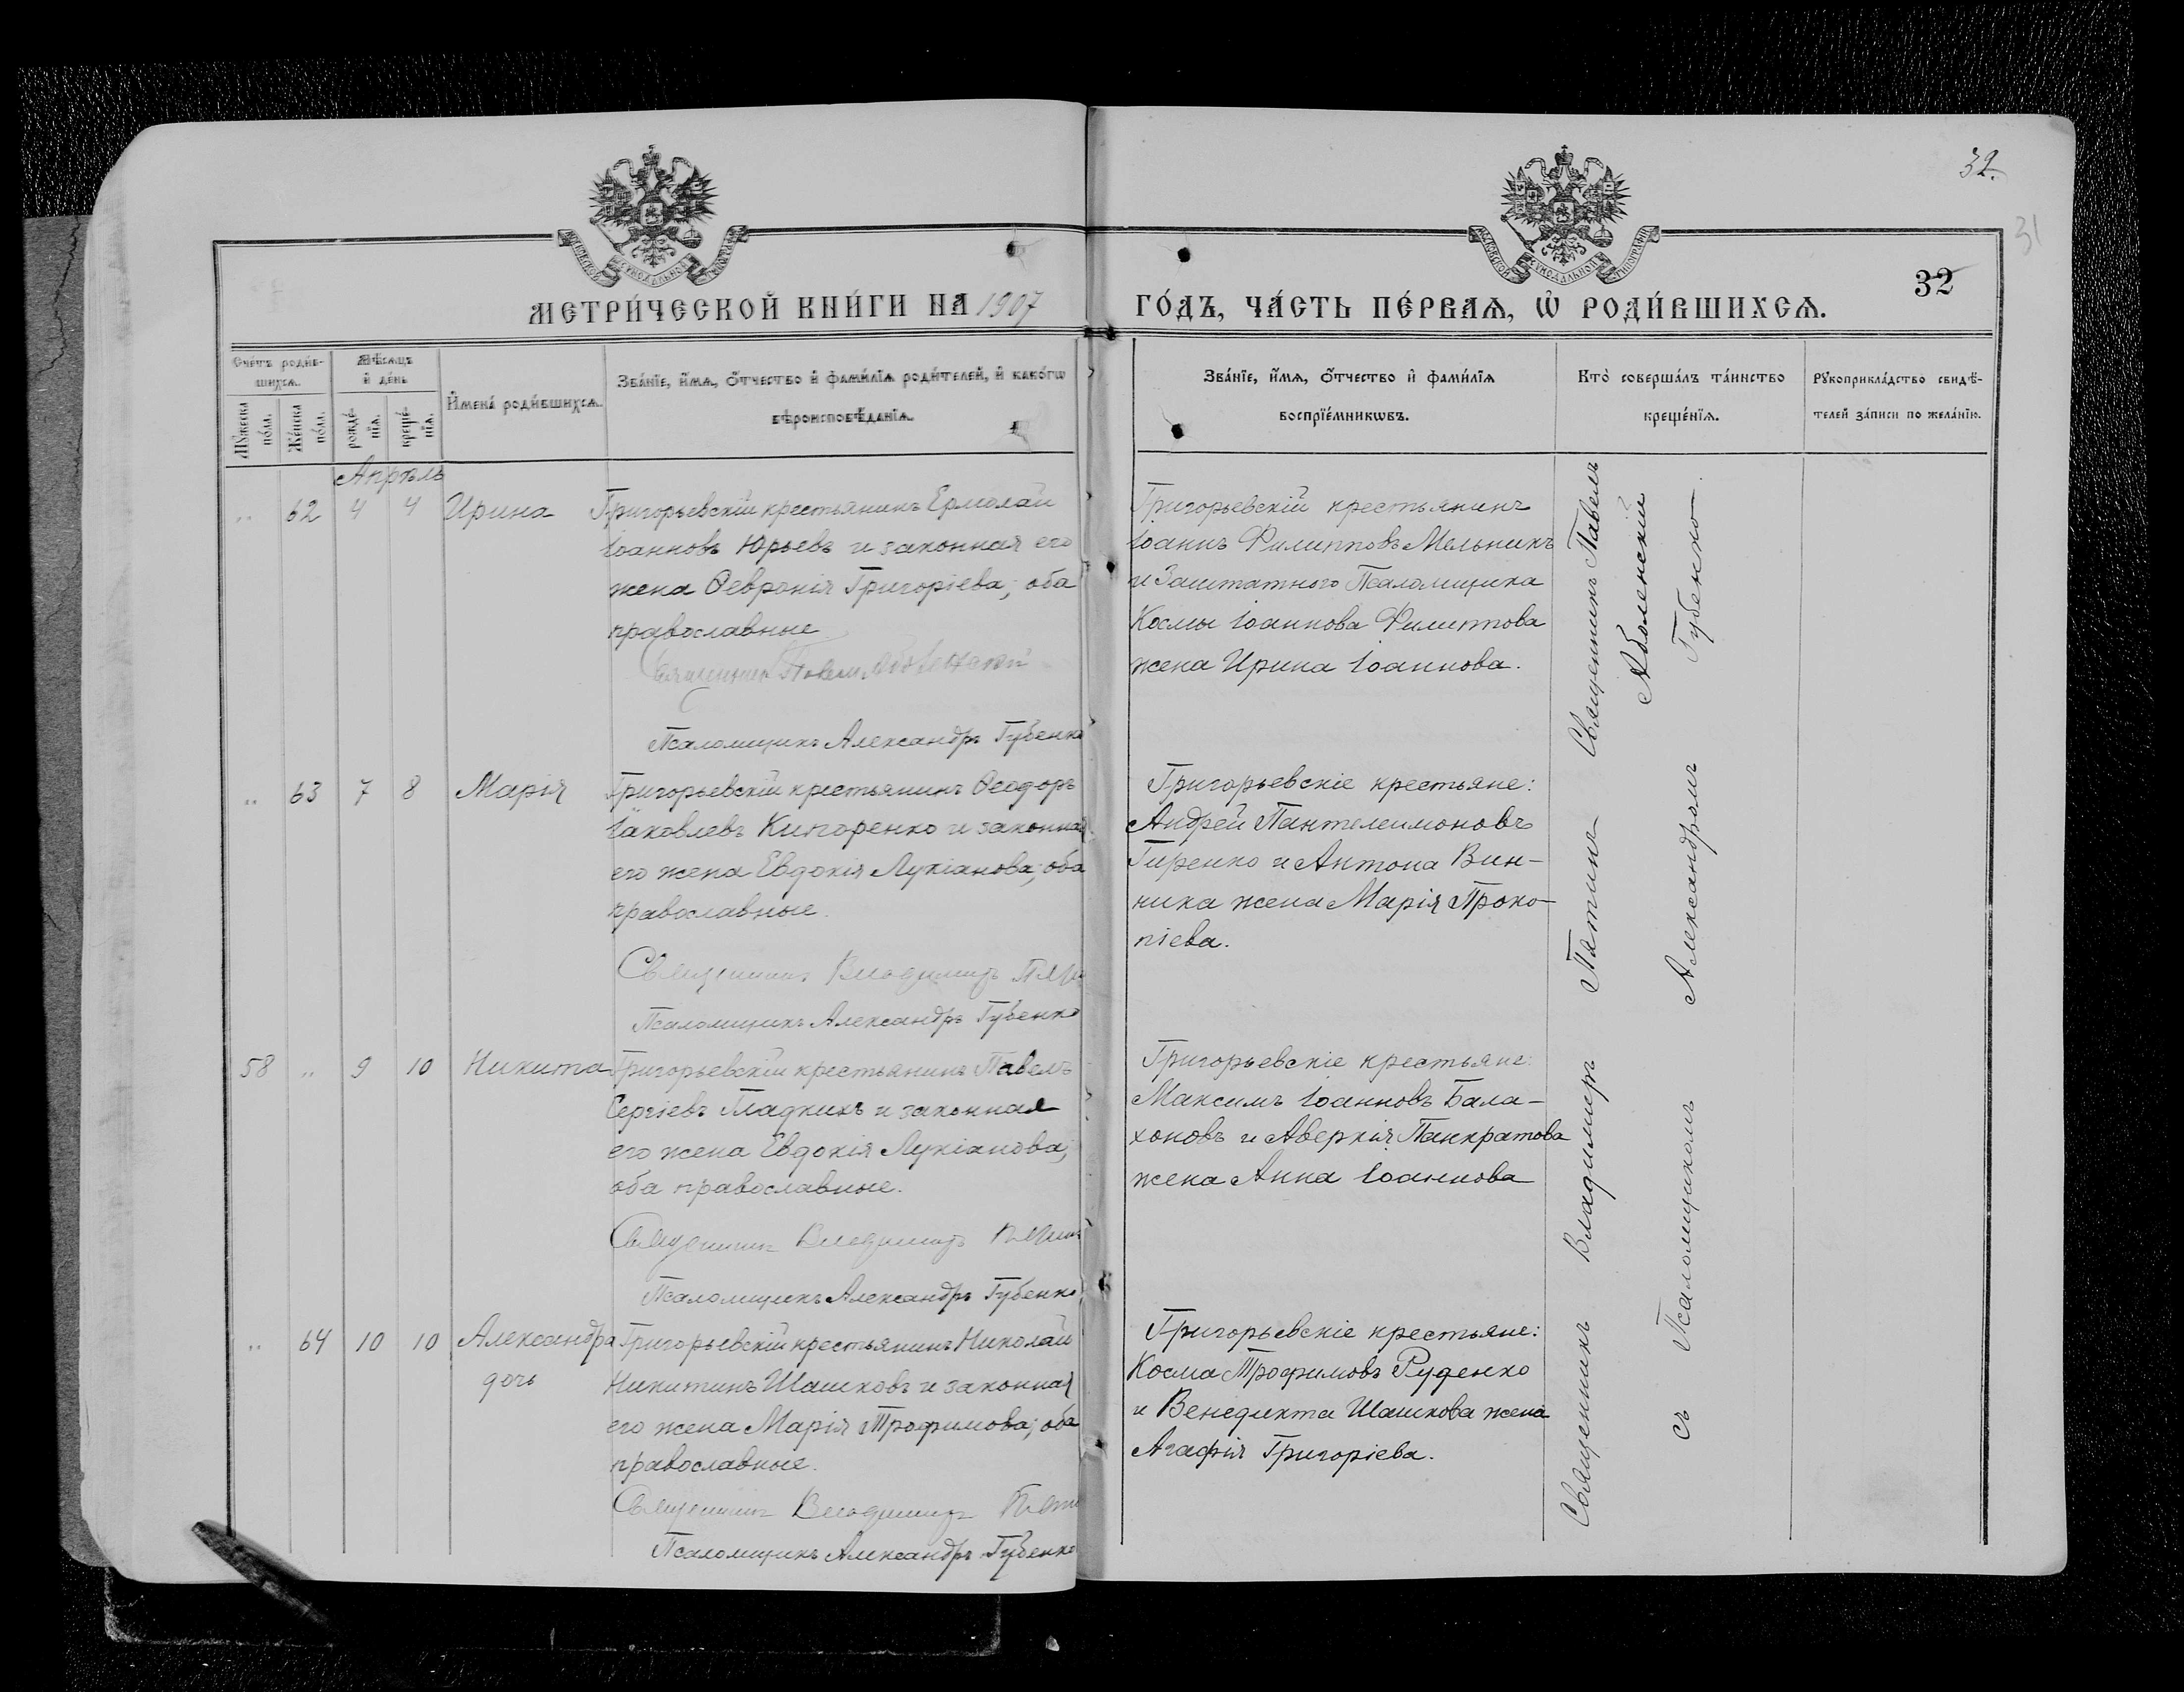 32.
31
32
МЕТРИ́ЧЕСКОЙ КНИ́ГИ НА 1907
ГО́ДЪ, ЧА́СТЬ ПЕ́РВАѦ, Ѡ҆ РОДИ́ВШИХСѦ.
Сче́тъ роди́в-
шихсѧ.
Мꙋ́жеска
по́ла.
Же́нска
по́ла.
Мѣ́сѧцъ
и҆ де́нь
рожде́-
нїѧ.
креще́-
нїѧ.
И҆мена̀ роди́вшихсѧ.
Зва́нїе, и҆́мѧ, ѻ҆́тчество и҆ фами́лїѧ роди́телей, и҆ како́гѡ
вѣроисповѣ́данїѧ.
Зва́нїе, и҆́мѧ, ѻ҆́тчество и҆ фами́лїѧ
воспрїе́мникѡвъ.
Кто̀ соверша́лъ та́инство
креще́нїѧ.
Рꙋкоприкла́дство свидѣ́-
телей за́писи по жела́нїю.
Апрѣль
.. 62 4 4 Ирина
Григорьевскій крестьянинъ Ермолай
Іоанновъ Юрьевъ и законная его
жена Ѳевронія Григоріева; оба
православные
Священникъ Павелъ Аболенскій
Псаломщикъ Александръ Губенко
Григорьевскій крестьянинъ
Іоаннъ Филипповъ Мельникъ
и Заштатного Псаломщика
Космы Іоаннова Филиппова
жена Ирина Іоаннова.
.. 63 7 8 Марія
Григорьевскій крестьянинъ Ѳеодоръ
Іаковлевъ Китченко и законная
его жена Евдокія Лукіанова; оба
православные.
Священникъ Владимиръ
Псаломщикъ Александръ Губенко
Григорьевскіе крестьяне:
Андрей Пантелеимоновъ
Гиренко и Антона Вин-
ника жена Марія Проко-
піева.
58 .. 9 10 Никита
Григорьевскій крестьянинъ Павелъ
Сергіевъ Гладкихъ и законная
его жена Евдокія Лукіанова;
оба православные.
Священникъ Владимиръ Пятинъ
Псаломщикъ Александръ Губенко
Григорьевскіе крестьяне:
Максимъ Іоанновъ Бала-
хоновъ и Аверкія Панкратова
жена Анна Іоаннова
.. 64 10 10 Александра
дочь
Григорьевскій крестьянинъ Николай
Никитинъ Шашковъ и законная
его жена Марія Трофимова; оба
православные.
Священникъ Владимиръ
Псаломщикъ Александръ Губенко
Григорьевскіе крестьяне:
Косма Трофимовъ Руденко
и Венедикта Шашкова жена
Агафія Григоріева.
Священникъ Павелъ
Аболенскій
Священникъ Владимиръ Пятинъ
съ Псаломщикомъ Александромъ Губенко.